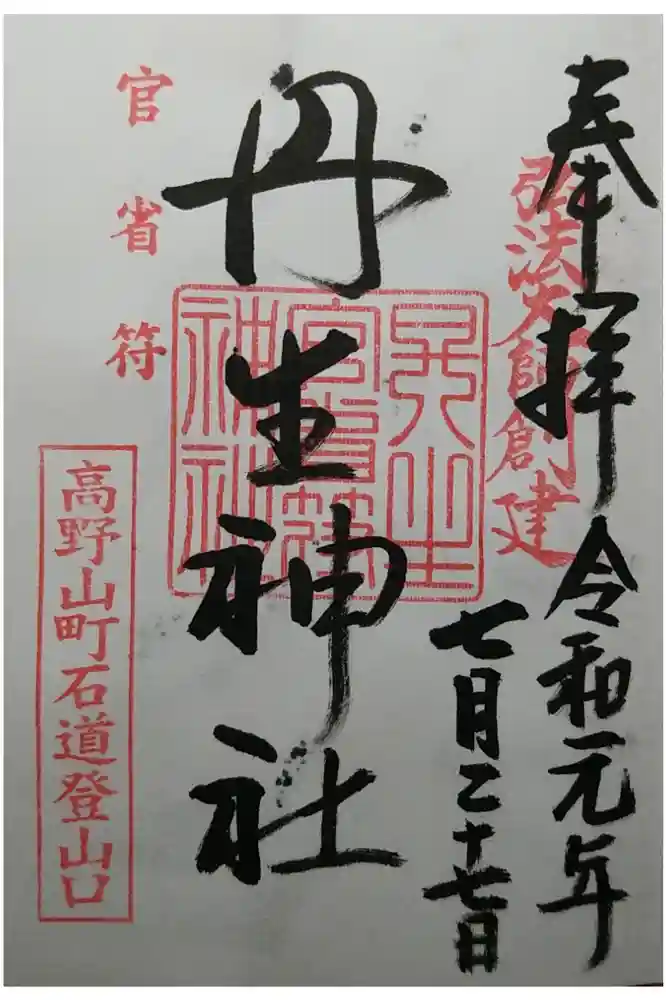 奉拝
弘法大師創建
令和元年
七月二十七日
丹生神社
官省符
高野山町石道登山口